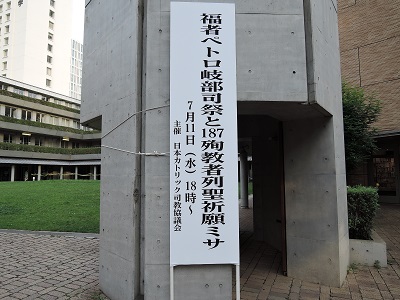 福者ペトロ岐部司祭と187殉教者列聖祈願ミサ
7月11日(水)18時〜
主催 日本カトリック司教協議会